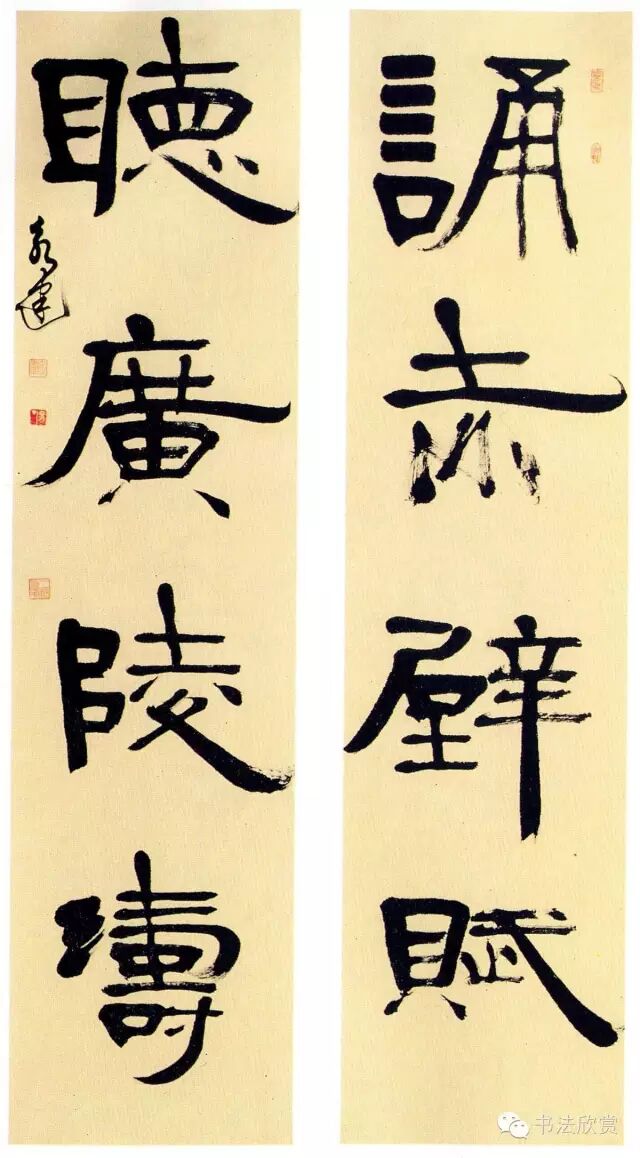 誦赤壁賦
聽廣陵濤
书法欣赏